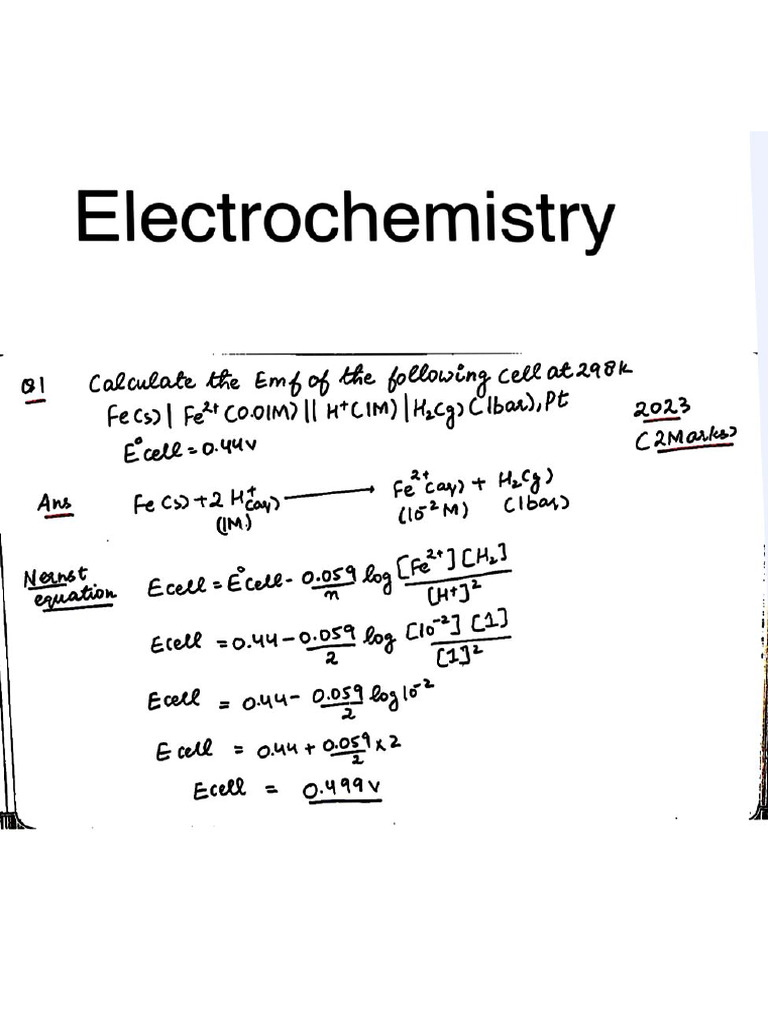 Electrochemistry
Q1 Calculate the Emf of the following cell at 298K
Fe(s) | Fe²⁺(0.01M) || H⁺(1M) | H₂(g) (1bar), Pt
2023
E°cell = 0.44V
(2Marks)
Ans Fe(s) + 2H⁺(aq) ⟶ Fe²⁺(aq) + H₂(g)
(1M) (10⁻²M) (1bar)
Nernst equation Ecell = E°cell - 0.059/n log [Fe²⁺][H₂]/[H⁺]²
Ecell = 0.44 - 0.059/2 log [10⁻²] [1]/[1]²
Ecell = 0.44 - 0.059/2 log10⁻²
Ecell = 0.44 + 0.059/2 x 2
Ecell = 0.499V